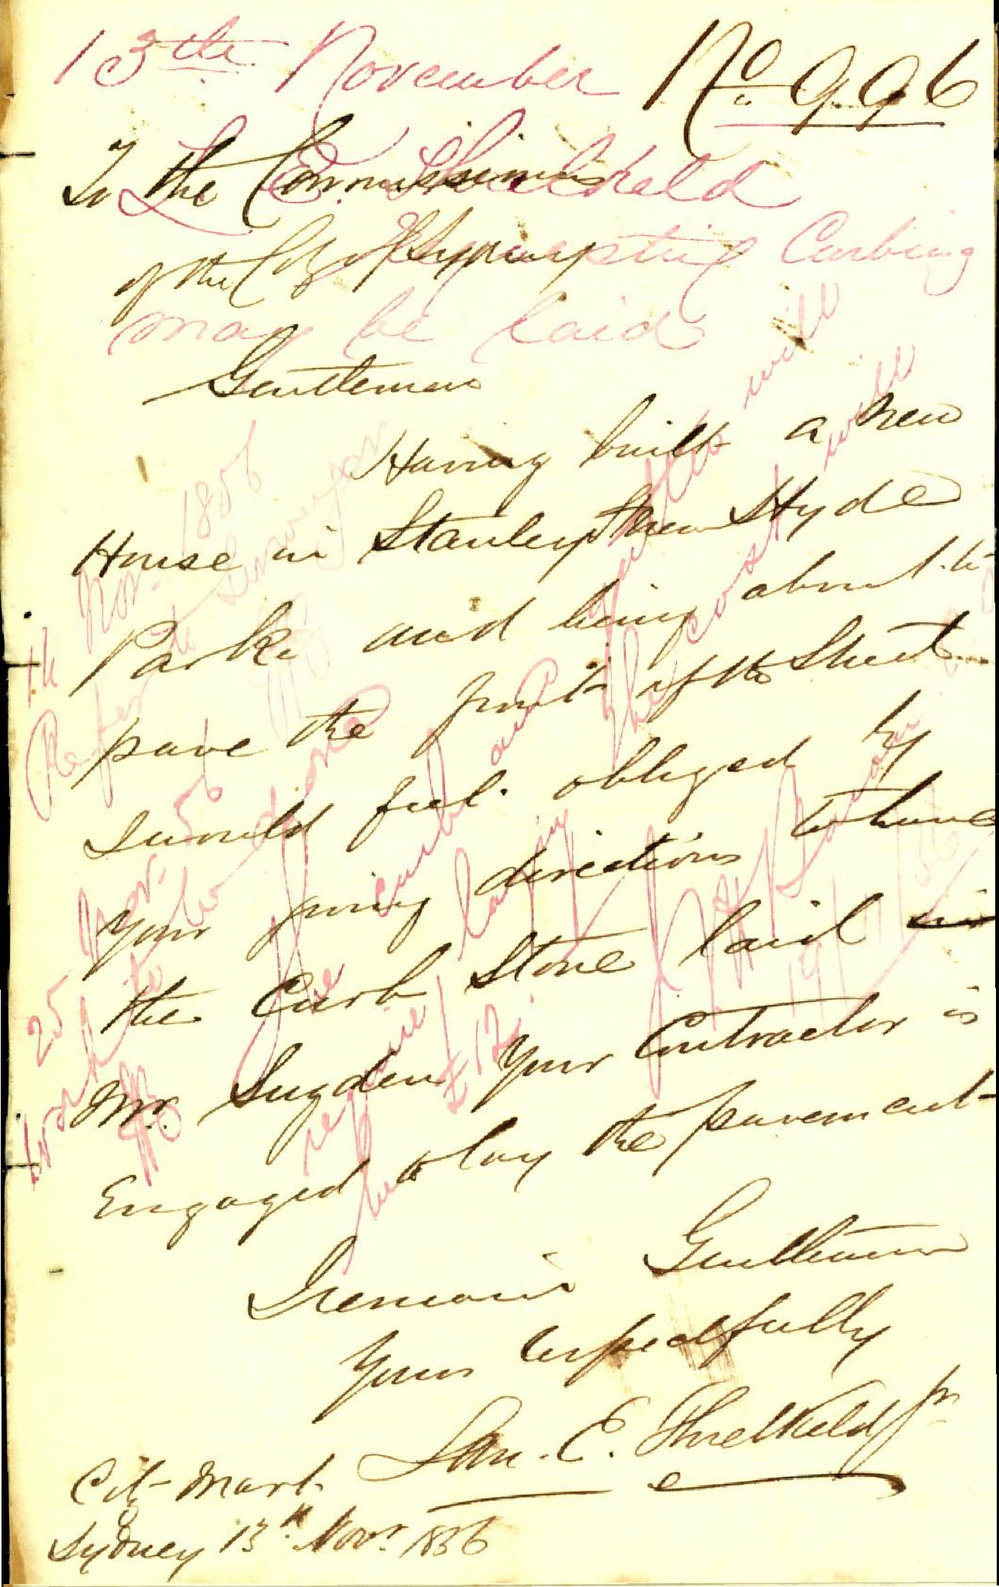 13th November
No 996
L. E. Threlkeld
Requesting Curbing
may be laid
To the Commissioners
of the City of Sydney
Gentlemen
Having built a new
House in Stanley Street Hyde
Park and being about to
pave the front of the Street
I would feel obliged by
your giving directions to have
the Curb Stone laid
Mr. Sugden your Contractor is
Engaged to lay the pavement
I remain Gentlemen
Yours respectfully
Lan. E. Threlkeld Jr
City Mart
Sydney 13th Novr 1856
Nov. 1856
Refer to Surveyor
25 Nov. 56
Work to be done
curb and
require laying
the cost will
be £12.